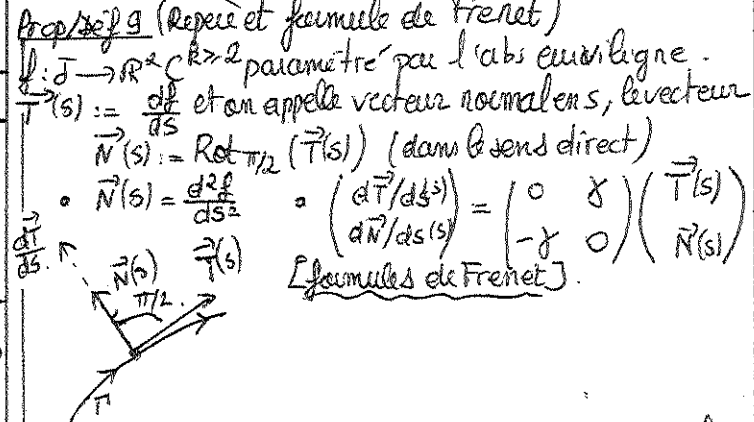 Prop/déf 9 (Repère et formule de Frenet)
f: J → ℝ² C^{k≥2} paramétré par l'abs curviligne.
T⃗(s) := df/ds et on appelle vecteur normal en s, le vecteur
N⃗(s) := Rot_{π/2} (T⃗(s)) (dans le sens direct)
• N⃗(s) = d²f/ds² • (dT⃗/ds(s) dN⃗/ds(s)) = (0 γ -γ 0)(T⃗(s) N⃗(s))
[formules de Frenet].
dT⃗/ds. N⃗(s) T⃗(s)
π/2.
Γ